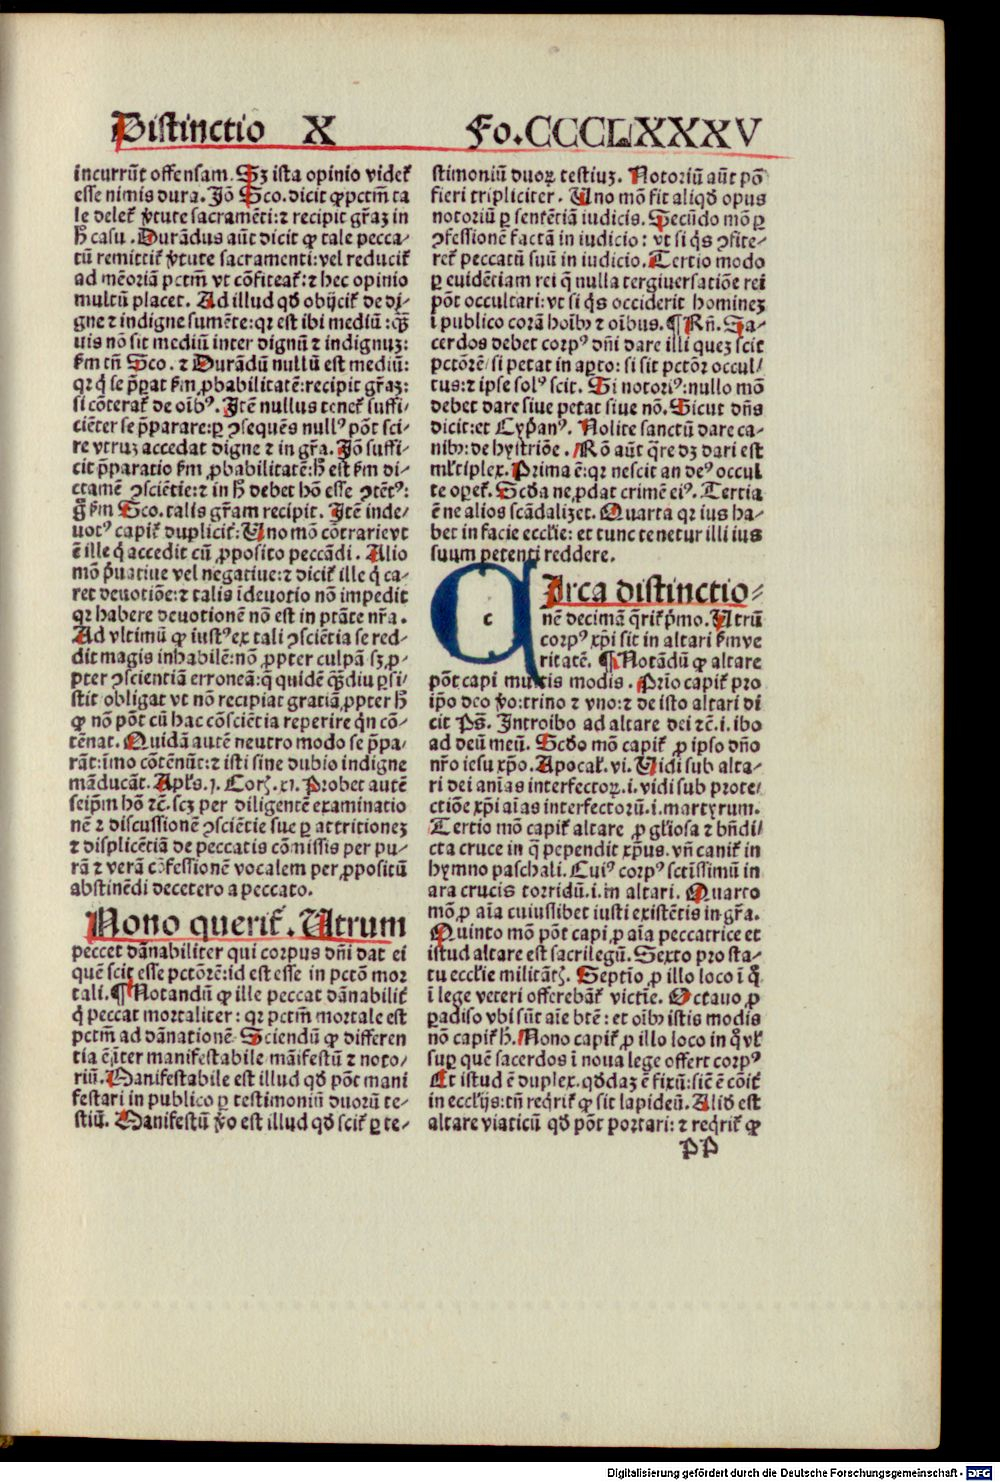 Distinctio X Fo.CCCCLXXXV
incurrūt offensam. Sʒ ista opinio videt᷑
esse nimis dura. Jõ Sco. dicit ꝙ pctm̄ ta
le delet᷑ ꝟtute sacramēti: ⁊ recipit gr̄aʒ in
h̄ casu. Durādus aūt dicit ꝙ tale pecca⸗
tū remittit᷑ ꝟtute sacramenti: vel reducit᷑
ad mēoriā pctm̄ vt cōfiteat᷑: ⁊ hec opinio
multū placet. Ad illud qḋ obijcit᷑ de di⸗
gne ⁊ indigne sumēte: qꝛ est ibi mediū: qȝ̄
uis nō sit mediū inter dignū ⁊ indignuʒ:
ẜm tn̄ Sco. ⁊ Durādū nullū est mediū:
qꝛ q̇ se p̄parat ẜm ꝓbabilitatē: recipit gr̄aʒ:
si cōterat᷑ de oībꝰ. Jtē nullus tenet᷑ suffi⸗
ciēter se p̄parare: ꝑ ↄsequēs nullꝰ pōt sci⸗
re vtruʒ accedat digne ⁊ in gr̄a. Jõ suffi⸗
cit p̄paratio ẜm ꝓbabilitatē: h̄ est ẜm di⸗
ctamē ↄsciētie: ⁊ in h̄ debet hō esse ↄtētꝰ:
g̊ ẜm Sco. talis gr̄am recipit. Jtē inde⸗
uotꝰ capit᷑ duplicit᷑: Uno mō cōtrarie vt
ē ille q̇ accedit cū ꝓposito peccādi. Alio
mō p̍uatiue vel negatiue: ⁊ dicit᷑ ille q̇ ca⸗
ret deuotiōe: ⁊ talis īdeuotio nō impedit
qꝛ habere deuotionē nō est in ptāte nr̄a.
Ad vltimū ꝙ iustꝰ ex tali ↄsciētia se red⸗
dit magis inhabilē: nō ꝓpter culpā sʒ ꝓ⸗
pter ↄscientiā erroneā: q̄ quidē qȝ̄diu ꝑsi⸗
stit obligat vt nō recipiat gratiā ꝓpter h̄
ꝙ nō pōt cū hac cōsciētia reperire q̇n cō⸗
tēnat. Quidā autē neutro modo se p̄pa⸗
rāt: īmo cōtēnūt: ⁊ isti sine dubio indigne
māducāt. Apl̄s .j. Corꝭ. xj. Probet autē
seip̄m hō ⁊c̄. scʒ per diligentē examinatio
nē ⁊ discussionē ↄsciētie sue ꝑ attritioneʒ
⁊ displicētiā de peccatis cōmissis per pu⸗
rā ⁊ verā cōfessionē vocalem per ꝓpositū
abstinēdi decetero a peccato.
Nono querit᷑. Utrum
peccet dānabiliter qui corpus dn̄i dat ei
quē scit esse pctōrē: id est esse in pctō mor
tali. ¶ Notandū ꝙ ille peccat dānabilit᷑
q̇ peccat mortaliter: qꝛ pctm̄ mortale est
pctm̄ ad dānationē. Sciendū ꝙ differen
tia ē īter manifestabile māifestū ⁊ noto⸗
riū. Manifestabile est illud qḋ pōt mani
festari in publico ꝑ testimoniū duorū te⸗
stiū. Manifestū ꝟo est illud qḋ scit᷑ ꝑ te⸗
stimoniū duoꝝ testiuʒ. Notoriū aūt pōt
fieri tripliciter. Uno mō fit aliqḋ opus
notoriū ꝑ sentētiā iudicis. Secūdo mō ꝑ
ↄfessionē factā in iudicio: vt si q̇s ↄfite⸗
ret᷑ peccatū suū in iudicio. Tertio modo
ꝑ euidētiam rei q̄ nulla tergiuersatiōe rei
pōt occultari: vt si q̇s occiderit homineʒ
ī publico corā hoīb⁹ ⁊ oībus. ¶ Rn̄. Sa⸗
cerdos debet corpꝰ dn̄i dare illi queʒ scit
pctōrē/ si petat in aꝑto: si sit pctōr occul⸗
tus: ⁊ ipse solꝰ scit. Si notoriꝰ: nullo mō
debet dare siue petat siue nō. Sicut dn̄s
dicit: et Cyp̍anꝰ. Nolite sanctū dare ca⸗
nibꝰ: de hystriōe. Rō aūt q̄re dʒ dari est
ml̄tiplex. Prima ē: qꝛ nescit an deꝰ occul
te oꝑet᷑. Scḋa ne ꝓdat crimē eiꝰ. Tertia
ē ne alios scādaliʒet. Quarta qꝛ ius ha⸗
bet in facie eccl̄ie: et tunc tenetur illi ius
suum petenti reddere.
Circa distinctio⸗
nē decimā q̄rit᷑ p̍mo. Utrū
corpꝰ xp̄i sit in altari ẜm ve
ritatē. ¶ Notādū ꝙ altare
pōt capi multis modis. Prīo capit᷑ pro
ip̄o deo ꝟo: trino ⁊ vno: ⁊ de isto altari di
cit Ps̄. Introibo ad altare dei ⁊c̄. i. ibo
ad deū meū. Scḋo mō capit᷑ ꝓ ipso dn̄o
nr̄o iesu xp̄o. Apocal̄. vi. Uidi sub alta⸗
ri dei anīas interfectoꝝ .i. vidi sub prote⸗
ctiōe xp̄i aīas interfectorū .i. martyrum.
Tertio mō capit᷑ altare ꝓ gl̄iosa ⁊ bn̄di⸗
cta cruce in q̄ pependit xp̄us. vn̄ canit᷑ in
hymno paschali. Cuiꝰ corpꝰ sctīssimū in
ara crucis torridū .i. in altari. Quarto
mō ꝓ aīa cuiuslibet iusti existētis in gr̄a.
Quinto mō pōt capi ꝓ aīa peccatrice et
istud altare est sacrilegū. Sexto pro sta⸗
tu eccl̄ie militātꝭ. Septīo ꝓ illo loco ī q̊
ī lege veteri offerebāt᷑ victīe. Octauo ꝓ
ꝑadiso vbi sūt aīe btē: et oībꝰ istis modis
nō capit᷑ h̄. Nono capit᷑ ꝓ illo loco in q̊ vl̄
suꝑ quē sacerdos ī noua lege offert corpꝰ
Et istud ē duplex. qḋdaʒ ē fixū: sic̄ ē cōit᷑
in eccl̄ijs: tn̄ req̇rit᷑ ꝙ sit lapideū. Aliḋ est
altare viaticū qḋ pōt portari: ⁊ req̇rit᷑ ꝙ
PP
Digitalisierung gefördert durch die Deutsche Forschungsgemeinschaft - DFG